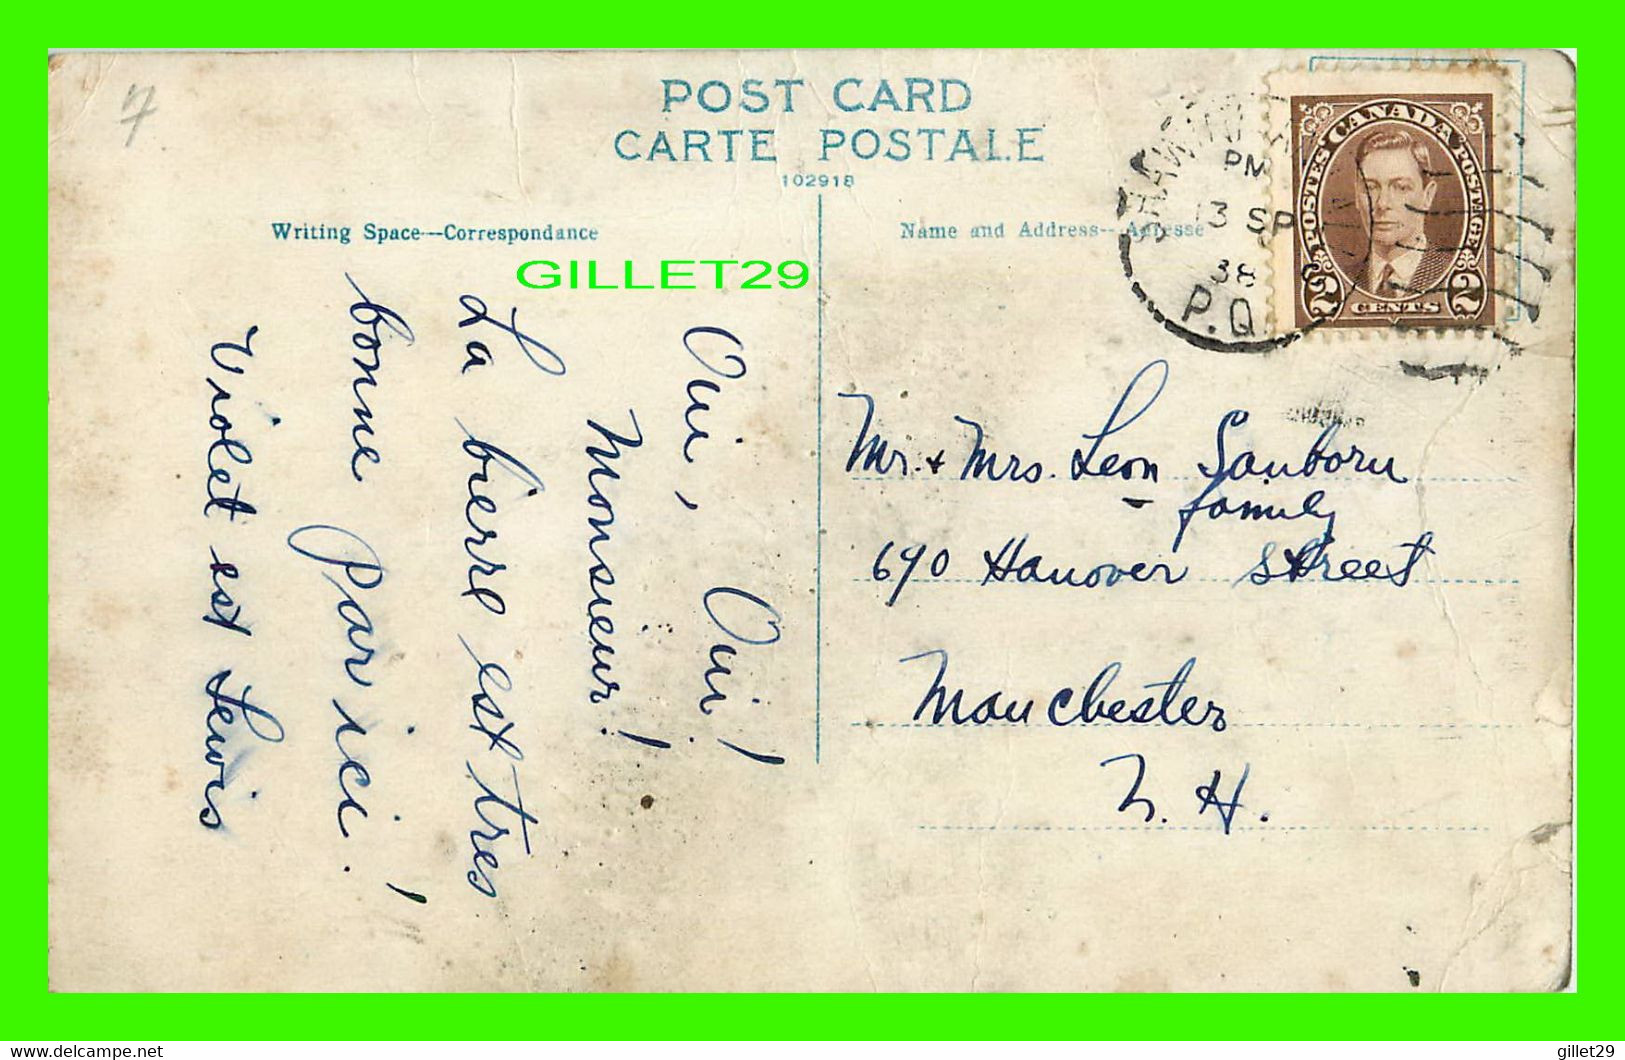 7
POST CARD
CARTE POSTALE
102918
Writing Space--Correspondance
Name and Address--Adresse
GILLET29
PM
13 SP
38
P.Q.
CANADA
POSTES POSTAGE
2 CENTS 2
Oui, Oui!
Monsieur!
La bierre est tres
bonne par ici!
Violet est Lewis
Mr. + Mrs. Leon Sanborn
family
690 Hanover Street
Manchester
N. H.
delcampe.net
gillet29